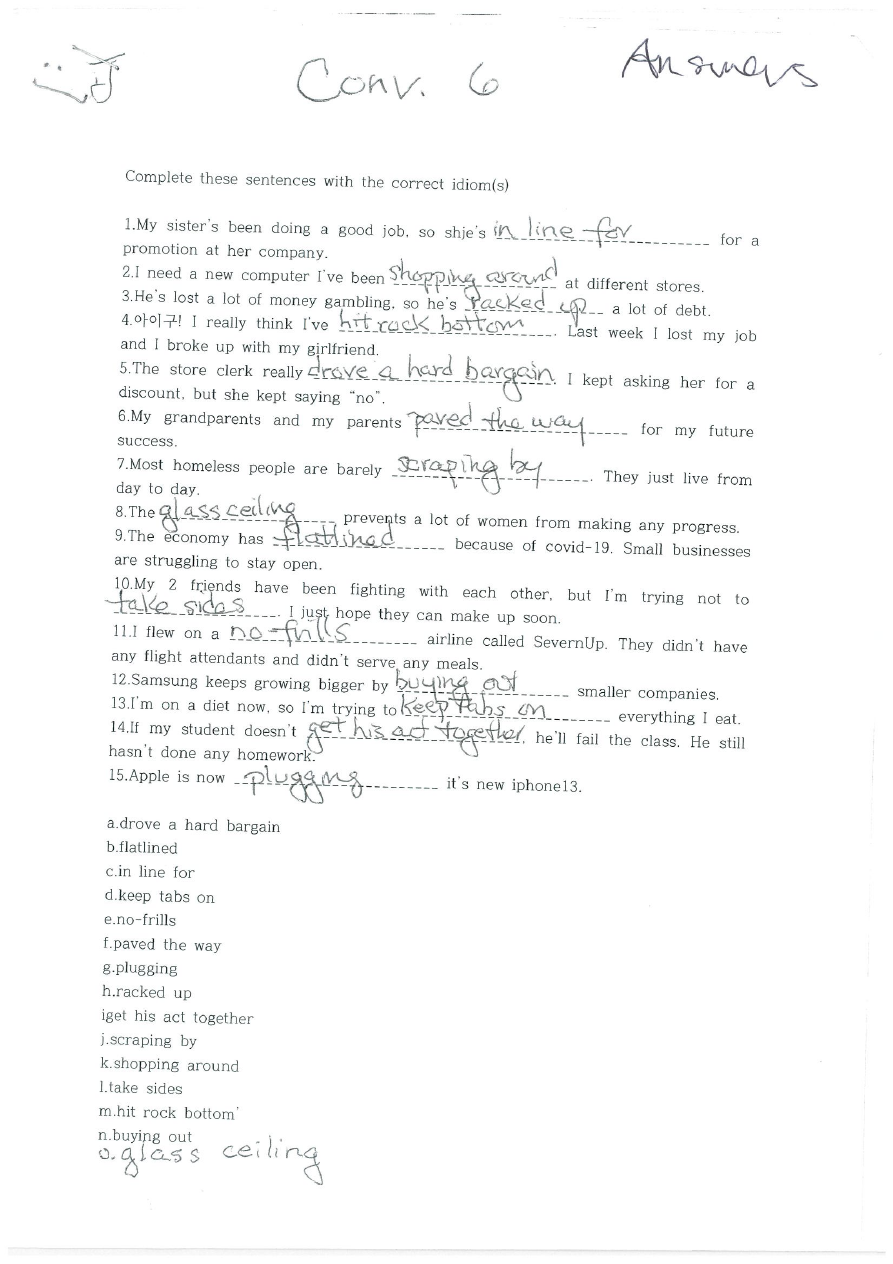 Conv. 6
Answers
Complete these sentences with the correct idiom(s)
1.My sister's been doing a good job, so shje's in line for for a
promotion at her company.
2.I need a new computer I've been shopping around at different stores.
3.He's lost a lot of money gambling, so he's racked up a lot of debt.
4.아이구! I really think I've hit rock bottom. Last week I lost my job
and I broke up with my girlfriend.
5.The store clerk really drove a hard bargain. I kept asking her for a
discount, but she kept saying "no".
6.My grandparents and my parents paved the way for my future
success.
7.Most homeless people are barely scraping by. They just live from
day to day.
8.The glass ceiling prevents a lot of women from making any progress.
9.The economy has flatlined because of covid-19. Small businesses
are struggling to stay open.
10.My 2 friends have been fighting with each other, but I'm trying not to
take sides. I just hope they can make up soon.
11.I flew on a no-frills airline called SevernUp. They didn't have
any flight attendants and didn't serve any meals.
12.Samsung keeps growing bigger by buying out smaller companies.
13.I'm on a diet now, so I'm trying to keep tabs on everything I eat.
14.If my student doesn't get his act together, he'll fail the class. He still
hasn't done any homework.
15.Apple is now plugging it's new iphone13.
a.drove a hard bargain
b.flatlined
c.in line for
d.keep tabs on
e.no-frills
f.paved the way
g.plugging
h.racked up
iget his act together
j.scraping by
k.shopping around
l.take sides
m.hit rock bottom'
n.buying out
o.glass ceiling